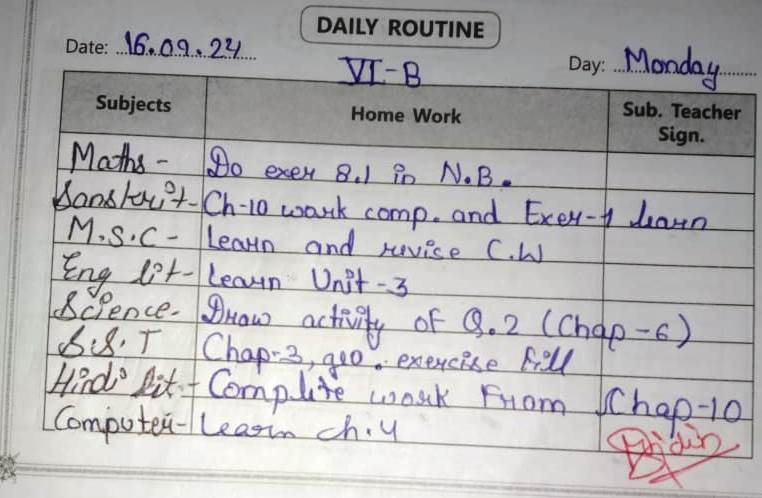 DAILY ROUTINE
Date: 16.09.24
VI-B
Day: Monday
Subjects Home Work Sub. Teacher Sign.
Maths - Do exer 8.1 in N.B.
Sanskrit - Ch-10 work comp. and Exer-1 learn
M.S.C - Learn and revise C.W
Eng lit - Learn Unit -3
Science - Draw activity of Q.2 (Chap -6)
S.S.T Chap-3, geo. exercise fill
Hindi Lit. - Complite work From Chap-10
Computer - Learn ch.4